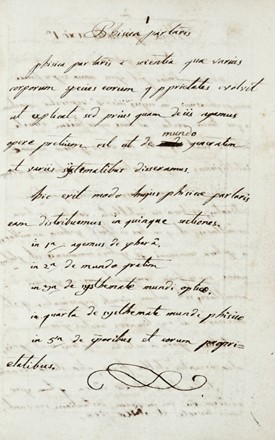 1
Phisica partaris
phisica partaris e scientia qua varias
corporum species eorum q pprietates evolvit
et explicat sed prius quam de iis agamus
opere pretium est ut de mundo generatim
et variis systematibus disseramus.
hic erit modo hujus phisicæ partaris
eam distribuemus in quinque sectiones.
in 1ª agemus de
in 2ª de mundo
in 3ª de systhemate mundi opticæ,
in quarta de systhemate mundi phisicæ
in 5ª de corporibus et eorum propri=
etatibus.